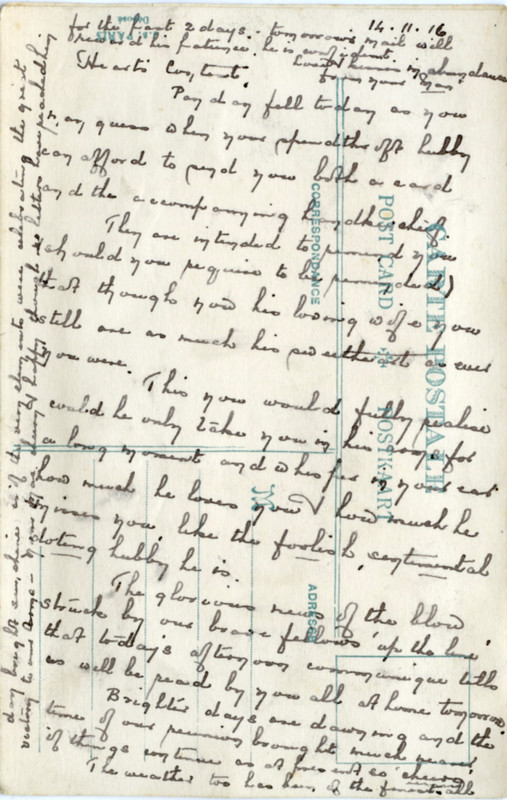 14.11.16
Heart's Content.
Pay day fell today as you
may guess when your spendthrift hubby
can afford to send you both a card
and the accompanying handkerchief.
They are intended to remind you
(should you require to be reminded)
that though now his loving wife you
still are as much his sweetheart as ever
you were.
This you would fully realise
could he only take you in his arms for
a long moment and whisper in your ear
how much he loves you & how much he
misses you, like the foolish, sentimental
doting hubby he is.
The glorious news of the blow
struck by our brave fellows 'up the line'
that today's afternoon communique tells
us will be read by you all at home tomorrow.
Brighter days are dawning and the
time of our reunion brought much nearer
if things continue as at present so cheery.
The weather too has been of the finest, all
day bright sunshine as if the very elements were celebrating the great
victory to our arms - your man cheery & happy though no letters have reached him
for the last 2 days. tomorrow's mail will
reward his patience he is confident.
Love & kisses in abundance
from your Man
CARTE POSTALE
POST CARD
POSTKART
CORRESPONDANCE
ADRESSE
M
PARIS
Déposé